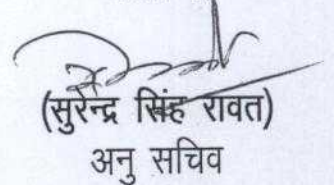 (सुरेन्द्र सिंह रावत)
अनु सचिव